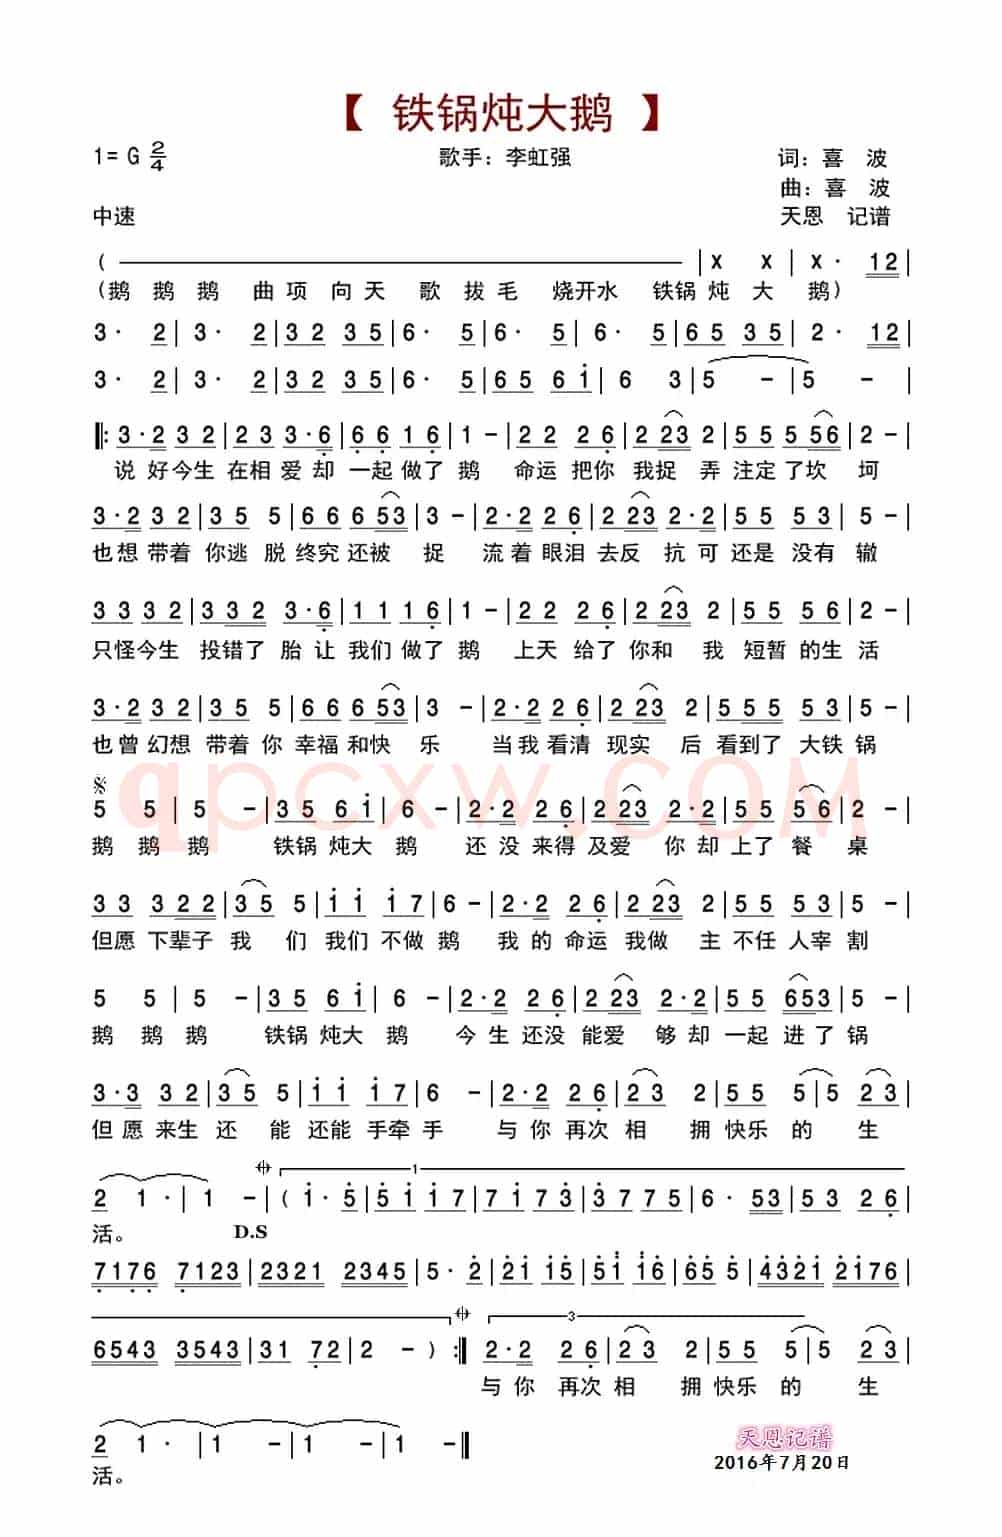 【 铁锅炖大鹅 】
1= G 2/4 歌手：李虹强 词：喜 波
曲：喜 波
中速 天恩 记谱
( ——— | x x | x· 12 |
(鹅 鹅 鹅 曲项 向天 歌 拔毛 烧开水 铁锅炖 大 鹅)
3· 2 | 3· 2 | 32 35 | 6· 5 | 6· 5 | 6· 5 | 65 35 | 2· 12 |
3· 2 | 3· 2 | 32 35 | 6· 5 | 65 6i | 6 3 | 5 - | 5 - |
‖: 3·2 32 | 23 3·6 | 66 16 | 1 - | 22 26 | 2 23 2 | 55 5 56 | 2 - |
说好今生 在相爱却 一起做了 鹅 命运把你 我捉 弄 注定了坎 坷
3·2 32 | 35 5 | 66 6 53 | 3 - | 2·2 26 | 2 23 2·2 | 55 53 | 5 - |
也想带着 你逃 脱 终究还被 捉 流着眼泪 去反 抗可 还是没有 辙
33 32 | 3 32 3·6 | 11 16 | 1 - | 22 26 | 2 23 2 | 55 56 | 2 - |
只怪今生 投错了 胎让 我们做了 鹅 上天给了 你和 我 短暂的生 活
3·2 32 | 35 5 | 66 6 53 | 3 - | 2·2 26 | 2 23 2 | 55 5 53 | 5 - |
也曾幻想 带着 你 幸福和快 乐 当我看清 现实 后 看到了 大铁 锅
qpcxw.COM
5 5 | 5 - | 35 6i | 6 - | 2·2 26 | 2 23 2 | 55 56 | 2 - |
鹅 鹅 鹅 铁锅炖大 鹅 还没来得 及爱 你 却上了餐 桌
33 3 22 | 35 5 | ii i7 | 6 - | 2·2 26 | 2 23 2 | 55 53 | 5 - |
但愿 下辈子 我 们 我们不做 鹅 我的命运 我做 主 不任人宰 割
5 5 | 5 - | 35 6i | 6 - | 2·2 26 | 2 23 2·2 | 55 653 | 5 - |
鹅 鹅 鹅 铁锅炖大 鹅 今生还没 能爱 够却 一起进了 锅
3·3 32 | 35 5 | ii i7 | 6 - | 2·2 26 | 23 2 | 55 5 | 5 23 |
但愿来生 还 能 还能手牵 手 与你再次 相 拥 快乐 的 生
2 1· | 1 - | ( i· 5 | 5i i7 | 7i 73 | 3 775 | 6· 53 | 53 26 |
活。 D.S
7176 7123 | 2321 2345 | 5· 2 | 2i i5 | 5i i6 | 65 5 | 432i 2i76 |
6543 3543 | 31 72 | 2 - ) :‖ 2·2 26 | 23 2 | 55 5 | 5 23 |
与你 再次 相 拥 快乐 的 生
2 1· | 1 - | 1 - | 1 - ‖
活。
天恩记谱
2016年7月20日